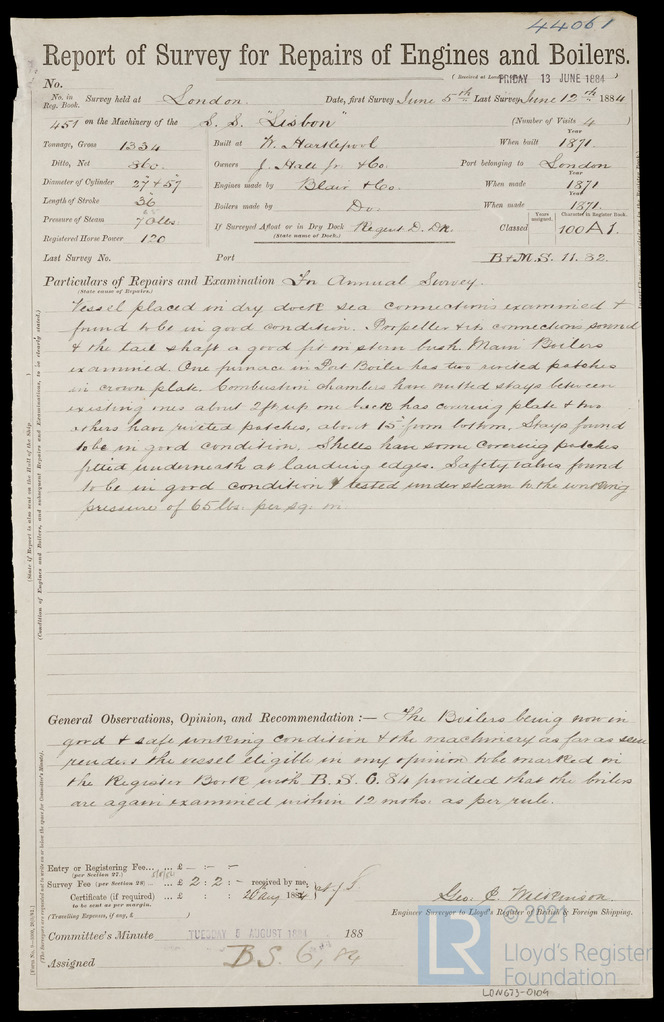 44061
Report of Survey for Repairs of Engines and Boilers.
(Received at London FRIDAY 13 JUNE 1884)
No.
No. in Reg. Book. Survey held at London. Date, first Survey June 5th Last Survey June 12th 1884
451 on the Machinery of the S. S. "Lisbon" (Number of Visits 4)
Tonnage, Gross 1334 Built at W. Hartlepool When built Year 1871.
Ditto, Net 860 Owners J. Hall Jr & Co. Port belonging to London
Diameter of Cylinder 27" & 57" Engines made by Blair & Co. When made Year 1871
Length of Stroke 36" Boilers made by Do. When made Year 1871.
Pressure of Steam 70 lbs. If Surveyed Afloat or in Dry Dock Regent D. Dk. Classed Years assigned. Character in Register Book. 100 A 1.
(State name of Dock.)
Registered Horse Power 120
Last Survey No. Port B & M. S. 11. 82.
Particulars of Repairs and Examination In Annual Survey.
(State name of Repairs.)
Vessel placed in dry dock sea connections examined &
found to be in good condition. Propeller & its connections sound
& the tail shaft a good fit in stern bush. Main Boilers
examined. One furnace in Port Boiler has two riveted patches
in crown plate. Combustion Chambers have nutted stays between
existing ones about 2ft up one back has covering plate & two
others have riveted patches, about 15" from bottom. Stays found
to be in good condition. Shells have some covering patches
fitted underneath at landing edges. Safety valves found
to be in good condition & tested under steam to the working
pressure of 65 lbs. per sq. in.
General Observations, Opinion, and Recommendation :— The Boilers being now in
good & safe working condition & the machinery as far as seen
renders the vessel eligible in my opinion to be marked in
the Register Book with B. S. 6. 84 provided that the boilers
are again examined within 12 mths. as per rule.
Entry or Registering Fee... ... £ – : – : –
(per Section 27.)
Survey Fee (per Section 28) ... ... £ 2 : 2 : – received by me,
Certificate (if required) ... £ : : 20 Aug 1884
to be sent as per margin.
(Travelling Expenses, if any, £ )
Geo. C. Wilkinson.
Engineer Surveyor to Lloyd's Register of British & Foreign Shipping.
Committee's Minute TUESDAY 5 AUGUST 1884 188
Assigned B.S. 6, 84
© 2021
LR
Lloyd's Register
Foundation
LON673-0109
(State if Report is also sent on the Hull of the Ship.)
(Condition of Engines and Boilers, and subsequent Repairs and Examinations, to be clearly stated.)